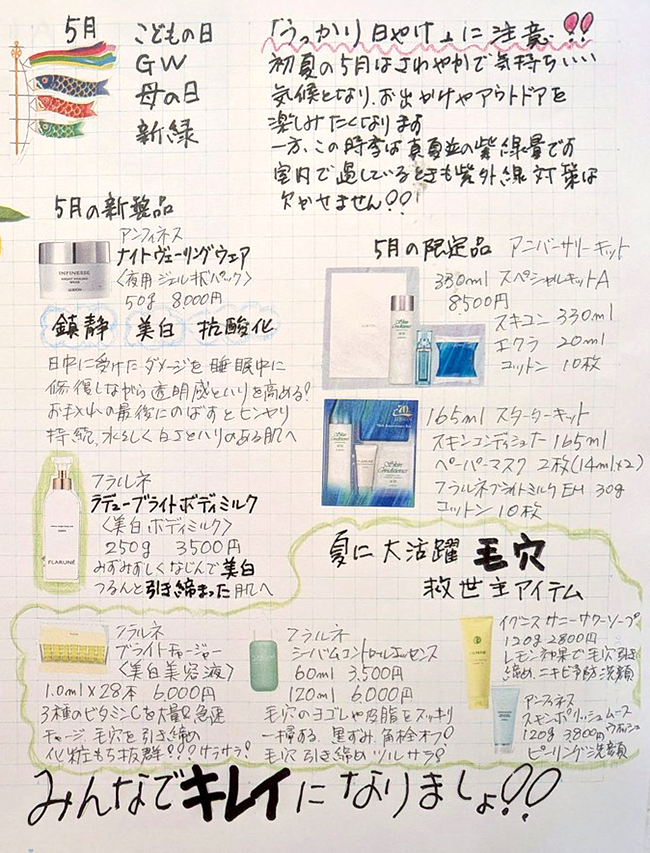 5月
こどもの日
GW
母の日
新緑
「うっかり日やけ」に注意!!
初夏の5月はさわやかで気持ちいい
気候となり、お出かけやアウトドアを
楽しみたくなります
一方、この時季は真夏並の紫線量です
室内で過しているときも紫外線対策は
欠かせません!!
5月の新製品
アンフィネス
ナイトヴェーリングウェア
〈夜用ジェル状パック〉
50g 8,000円
INFINESSE
鎮静 美白 抗酸化
日中に受けたダメージを睡眠中に
修復しながら透明感とハリを高める!
お手入れの最後にのばすとヒンヤリ
持続、水々しく白さとハリのある肌へ
5月の限定品 アニバーサリーキット
330ml スペシャルキットA
8,500円
スキコン 330ml
エクラ 20ml
コットン 10枚
Skin Conditioner
165ml スターターキット
スキンコンディショナー 165ml
ペーパーマスク 2枚(14ml×2)
フラルネブライトミルクEM 30g
コットン 10枚
Skin Conditioner
フラルネ
ラデューブライトボディミルク
〈美白ボディミルク〉
250g 3500円
みずみずしくなじんで美白
つるんと引き締まった肌へ
FLARUNÉ
夏に大活躍 毛穴
救世主アイテム
フラルネ
ブライトチャージャー
〈美白美容液〉
1.0ml×28本 6,000円
3種のビタミンCを大量&急速
チャージ、毛穴を引き締め
化粧もち抜群!!!サラサラ!
フラルネ
シーバムコントロールエッセンス
60ml 3,500円
120ml 6,000円
毛穴のヨゴレや皮脂をスッキリ
一掃する、黒ずみ、角栓オフ!
毛穴引き締めツルサラ!
イグニス サニーサワーソープ
120g 2800円
レモン効果で毛穴引き
締め、ニキビ予防洗顔
アンフィネス
スキンポリッシュムースウォッシュ
120g 3800円
ピーリング洗顔
みんなでキレイになりましょ!!